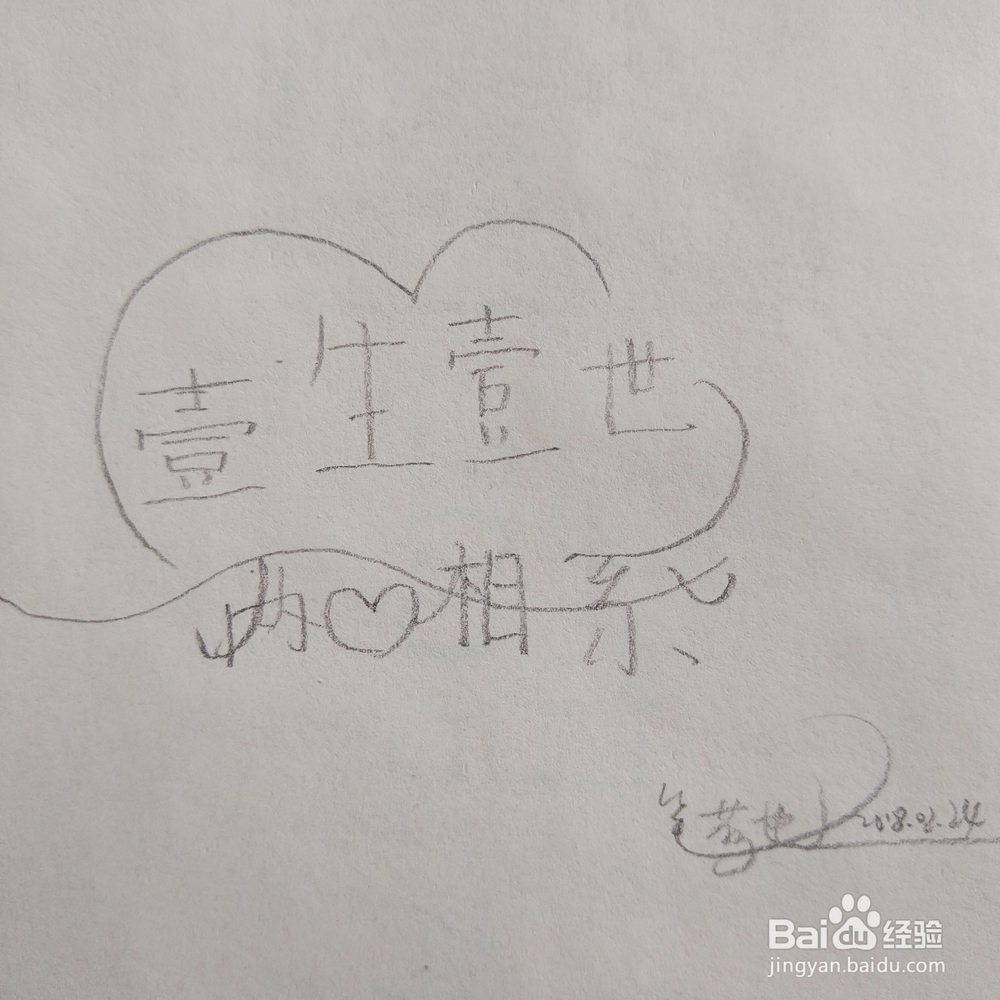 壹生壹世
两♡相系
2018.02.24
Baidu经验
jingyan.baidu.com